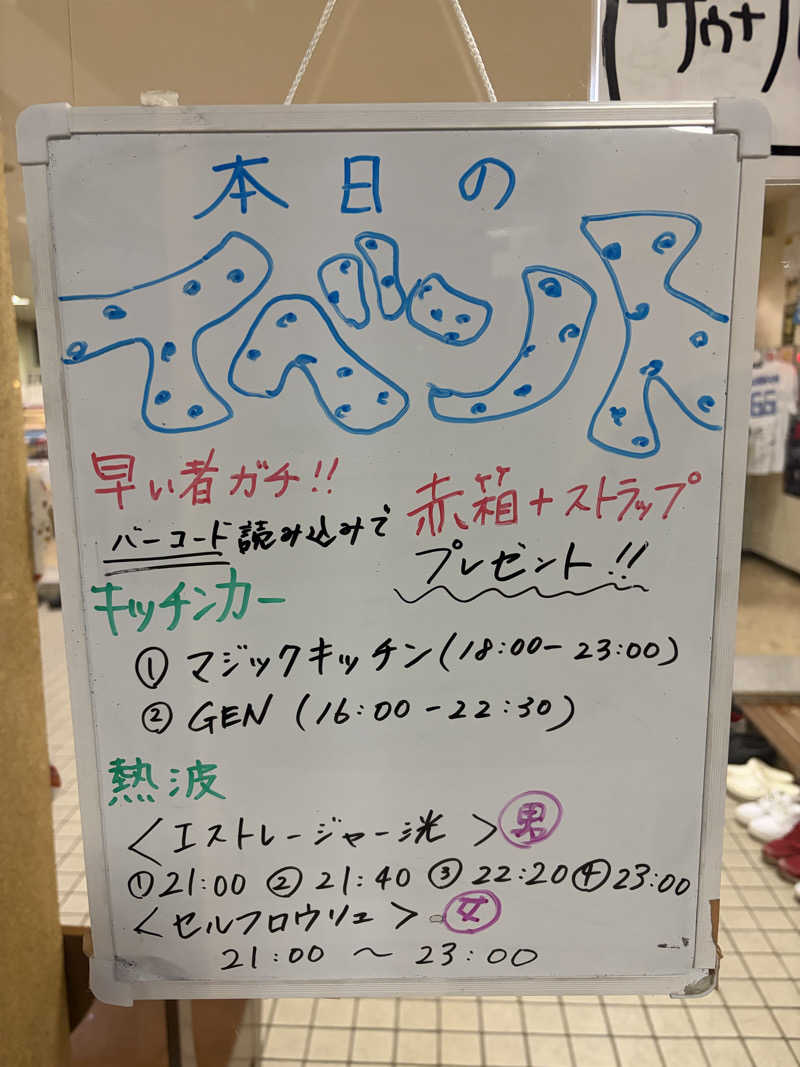 サウナ
本日の
イベント
早い者ガチ!!
赤箱+ストラップ
バーコード読み込みで
プレゼント!!
キッチンカー
① マジックキッチン(18:00-23:00)
② GEN (16:00-22:30)
熱波
<エストレージャー洸> 男
①21:00 ②21:40 ③22:20 ④23:00
<セルフロウリュ> 女
21:00 ~ 23:00
66